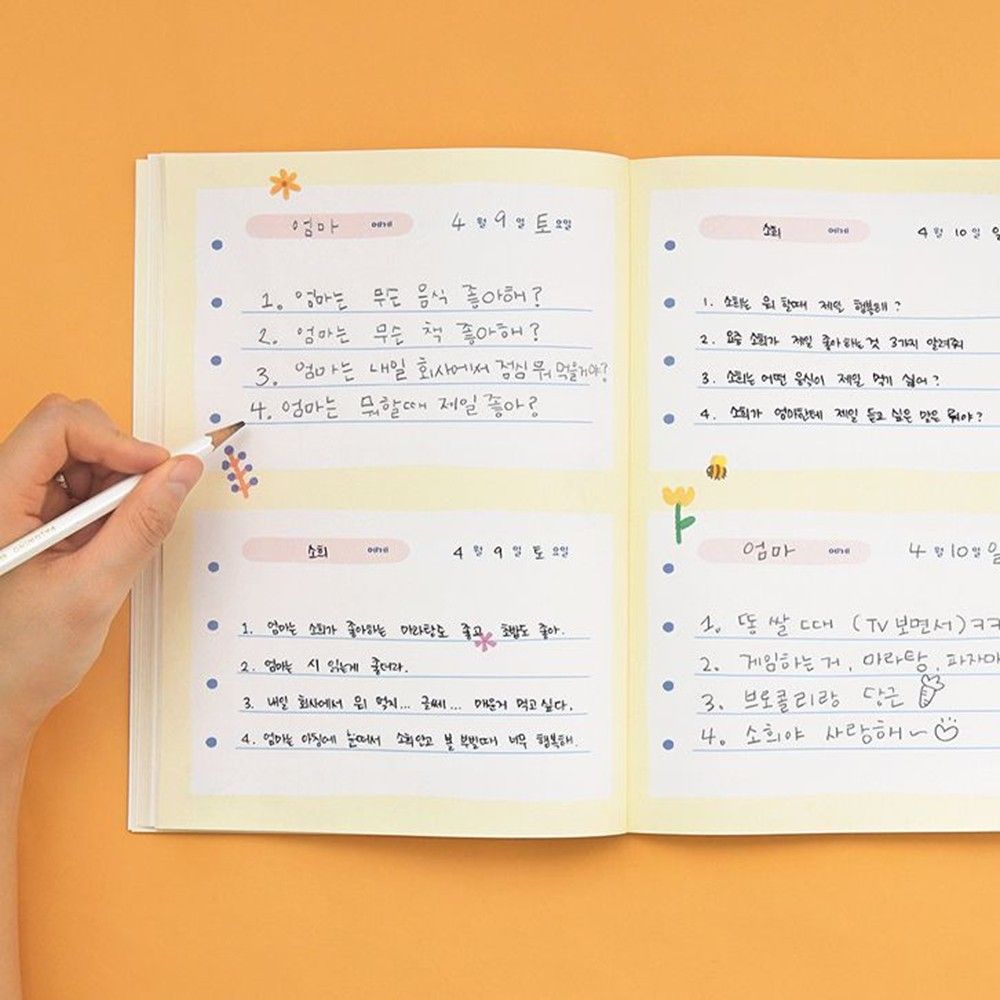 엄마 에게 4 월 9 일 토 요일
1. 엄마는 무슨 음식 좋아해?
2. 엄마는 무슨 책 좋아해?
3. 엄마는 내일 회사에서 점심 뭐 먹을거야?
4. 엄마는 뭐할때 제일 좋아?
소희 에게 4 월 9 일 토 요일
1. 엄마는 소희가 좋아하는 마라탕도 좋고 초밥도 좋아.
2. 엄마는 시 읽는게 좋더라.
3. 내일 회사에서 뭐 먹지... 글쎄... 매운거 먹고싶다.
4. 엄마는 아침에 눈떠서 소희안고 볼 부빌때 너무 행복해.
소희 에게 4 월 10 일
1. 소희는 뭐 할때 제일 행복해?
2. 요즘 소희가 제일 좋아하는것 3가지 알려줘
3. 소희는 어떤 음식이 제일 먹기 싫어?
4. 소희가 엄마한테 제일 듣고 싶은 말은 뭐야?
엄마 에게 4 월 10 일
1. 똥 쌀 때 (TV 보면서) ㅋㅋ
2. 게임하는거, 마라탕, 파자마
3. 브로콜리랑 당근
4. 소희야 사랑해~